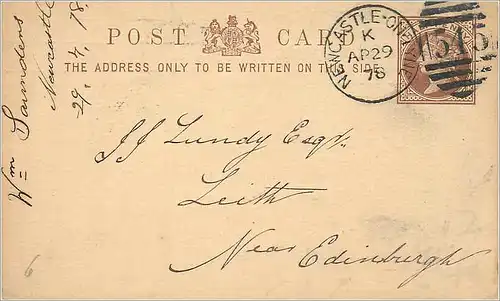 POST CARD
THE ADDRESS ONLY TO BE WRITTEN ON THIS SIDE.
NEWCASTLE-ON-
K
AP 29
78
545
JJ Lundy Esqr.
Leith
Near Edinburgh
Wm Saunders
Newcastle
29. 4. 78.
6